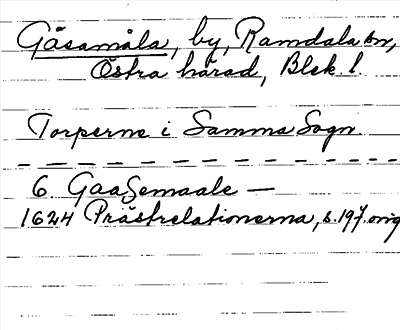 Gåsamåla, by, Ramdala sn,
Östra härad, Blek. l.
Torperne i Samma Sogn.
6. Gaasemaale —
1624 Prästrelationerna, s. 197. orig